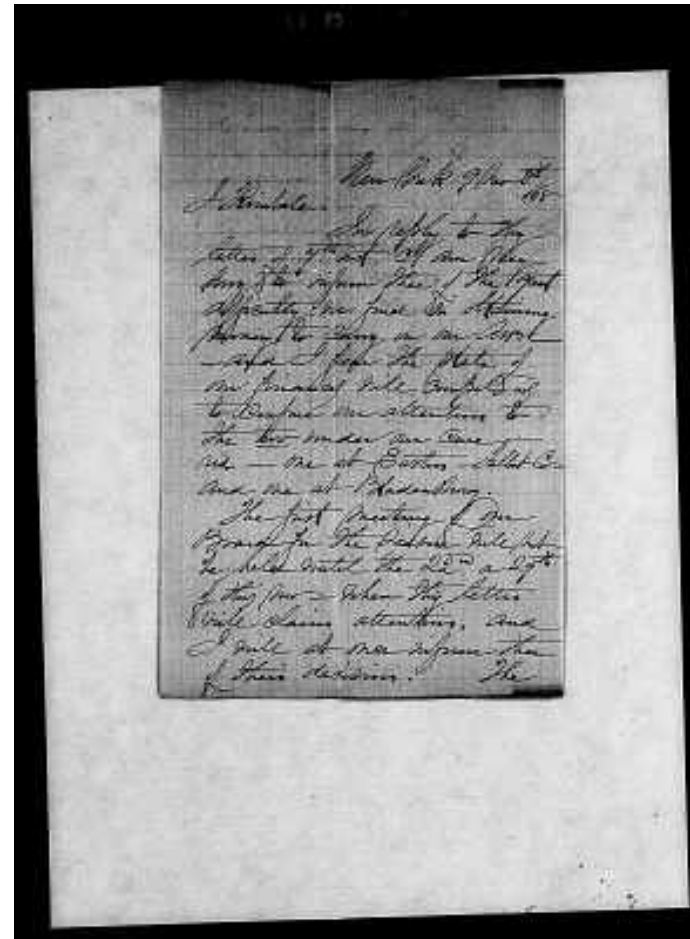 New York 9 Mo 8th
J Kimball
In reply to thy
letter of 7th inst I am
to inform thee of the great
difficulty we find in obtaining
money to carry on our work
and I fear the state of
our finances will compel us
to confine our attention to
the two under our care
one at Easton Talbot Co
and one at Bladensburg
The first meeting of our
Board for the season will not
be held until the 22nd or 29th
of this mo when thy letter
will claim attention, and
I will at once inform thee
of their decision. The